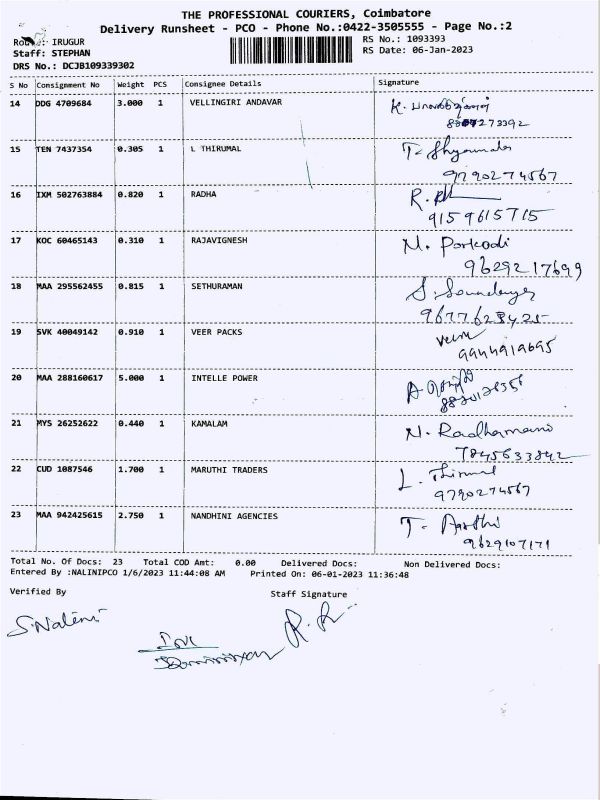 THE PROFESSIONAL COURIERS, Coimbatore
Delivery Runsheet - PCO - Phone No.:0422-3505555 - Page No.:2
IRUGUR RS No.: 1093393
Staff: STEPHAN RS Date: 06-Jan-2023
DRS No.: DCJB109339302
S No Consignment No Weight PCS Consignee Details Signature
14 DDG 4709684 3.000 1 VELLINGIRI ANDAVAR K.
273392
15 TEN 7437354 0.305 1 L THIRUMAL T. Shyamala
9790274567
16 IXM 502763884 0.820 1 RADHA R.
9159615715
17 KOC 60465143 0.310 1 RAJAVIGNESH M. Porkodi
9629217699
18 MAA 295562455 0.815 1 SETHURAMAN S.
9677628425
19 SVK 40049142 0.910 1 VEER PACKS
9944919695
20 MAA 288160617 5.000 1 INTELLE POWER A
21 MYS 26252622 0.440 1 KAMALAM N. Radhamani
7845633842
22 CUD 1087546 1.700 1 MARUTHI TRADERS L. Thirumal
9790274567
23 MAA 942425615 2.750 1 NANDHINI AGENCIES T. Aarthi
9629107171
Total No. Of Docs: 23 Total COD Amt: 0.00 Delivered Docs: Non Delivered Docs:
Entered By :NALINIPCO 1/6/2023 11:44:08 AM Printed On: 06-01-2023 11:36:48
Verified By Staff Signature
S.Nalini